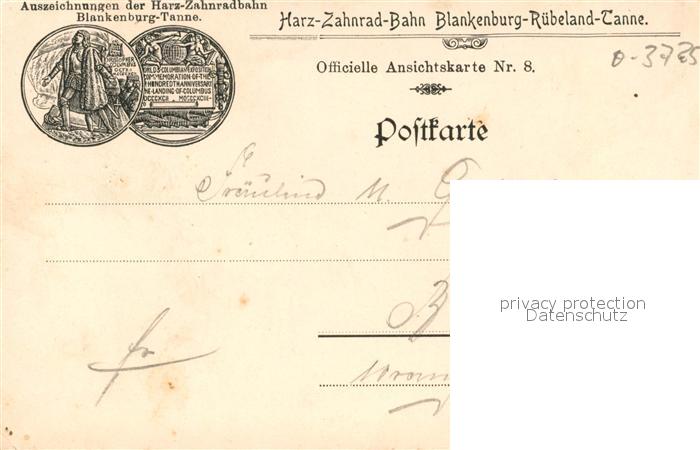 Auszeichnungen der Harz-Zahnradbahn
Blankenburg-Tanne.
Harz-Zahnrad-Bahn Blankenburg-Rübeland-Tanne.
Officielle Ansichtskarte Nr. 8.
Postkarte
WORLD'S COLUMBIAN EXPOSITION
COMMEMORATION OF THE
HUNDREDTH ANNIVERSARY
THE LANDING OF COLUMBUS
Fräulein M.
fr
privacy protection
Datenschutz